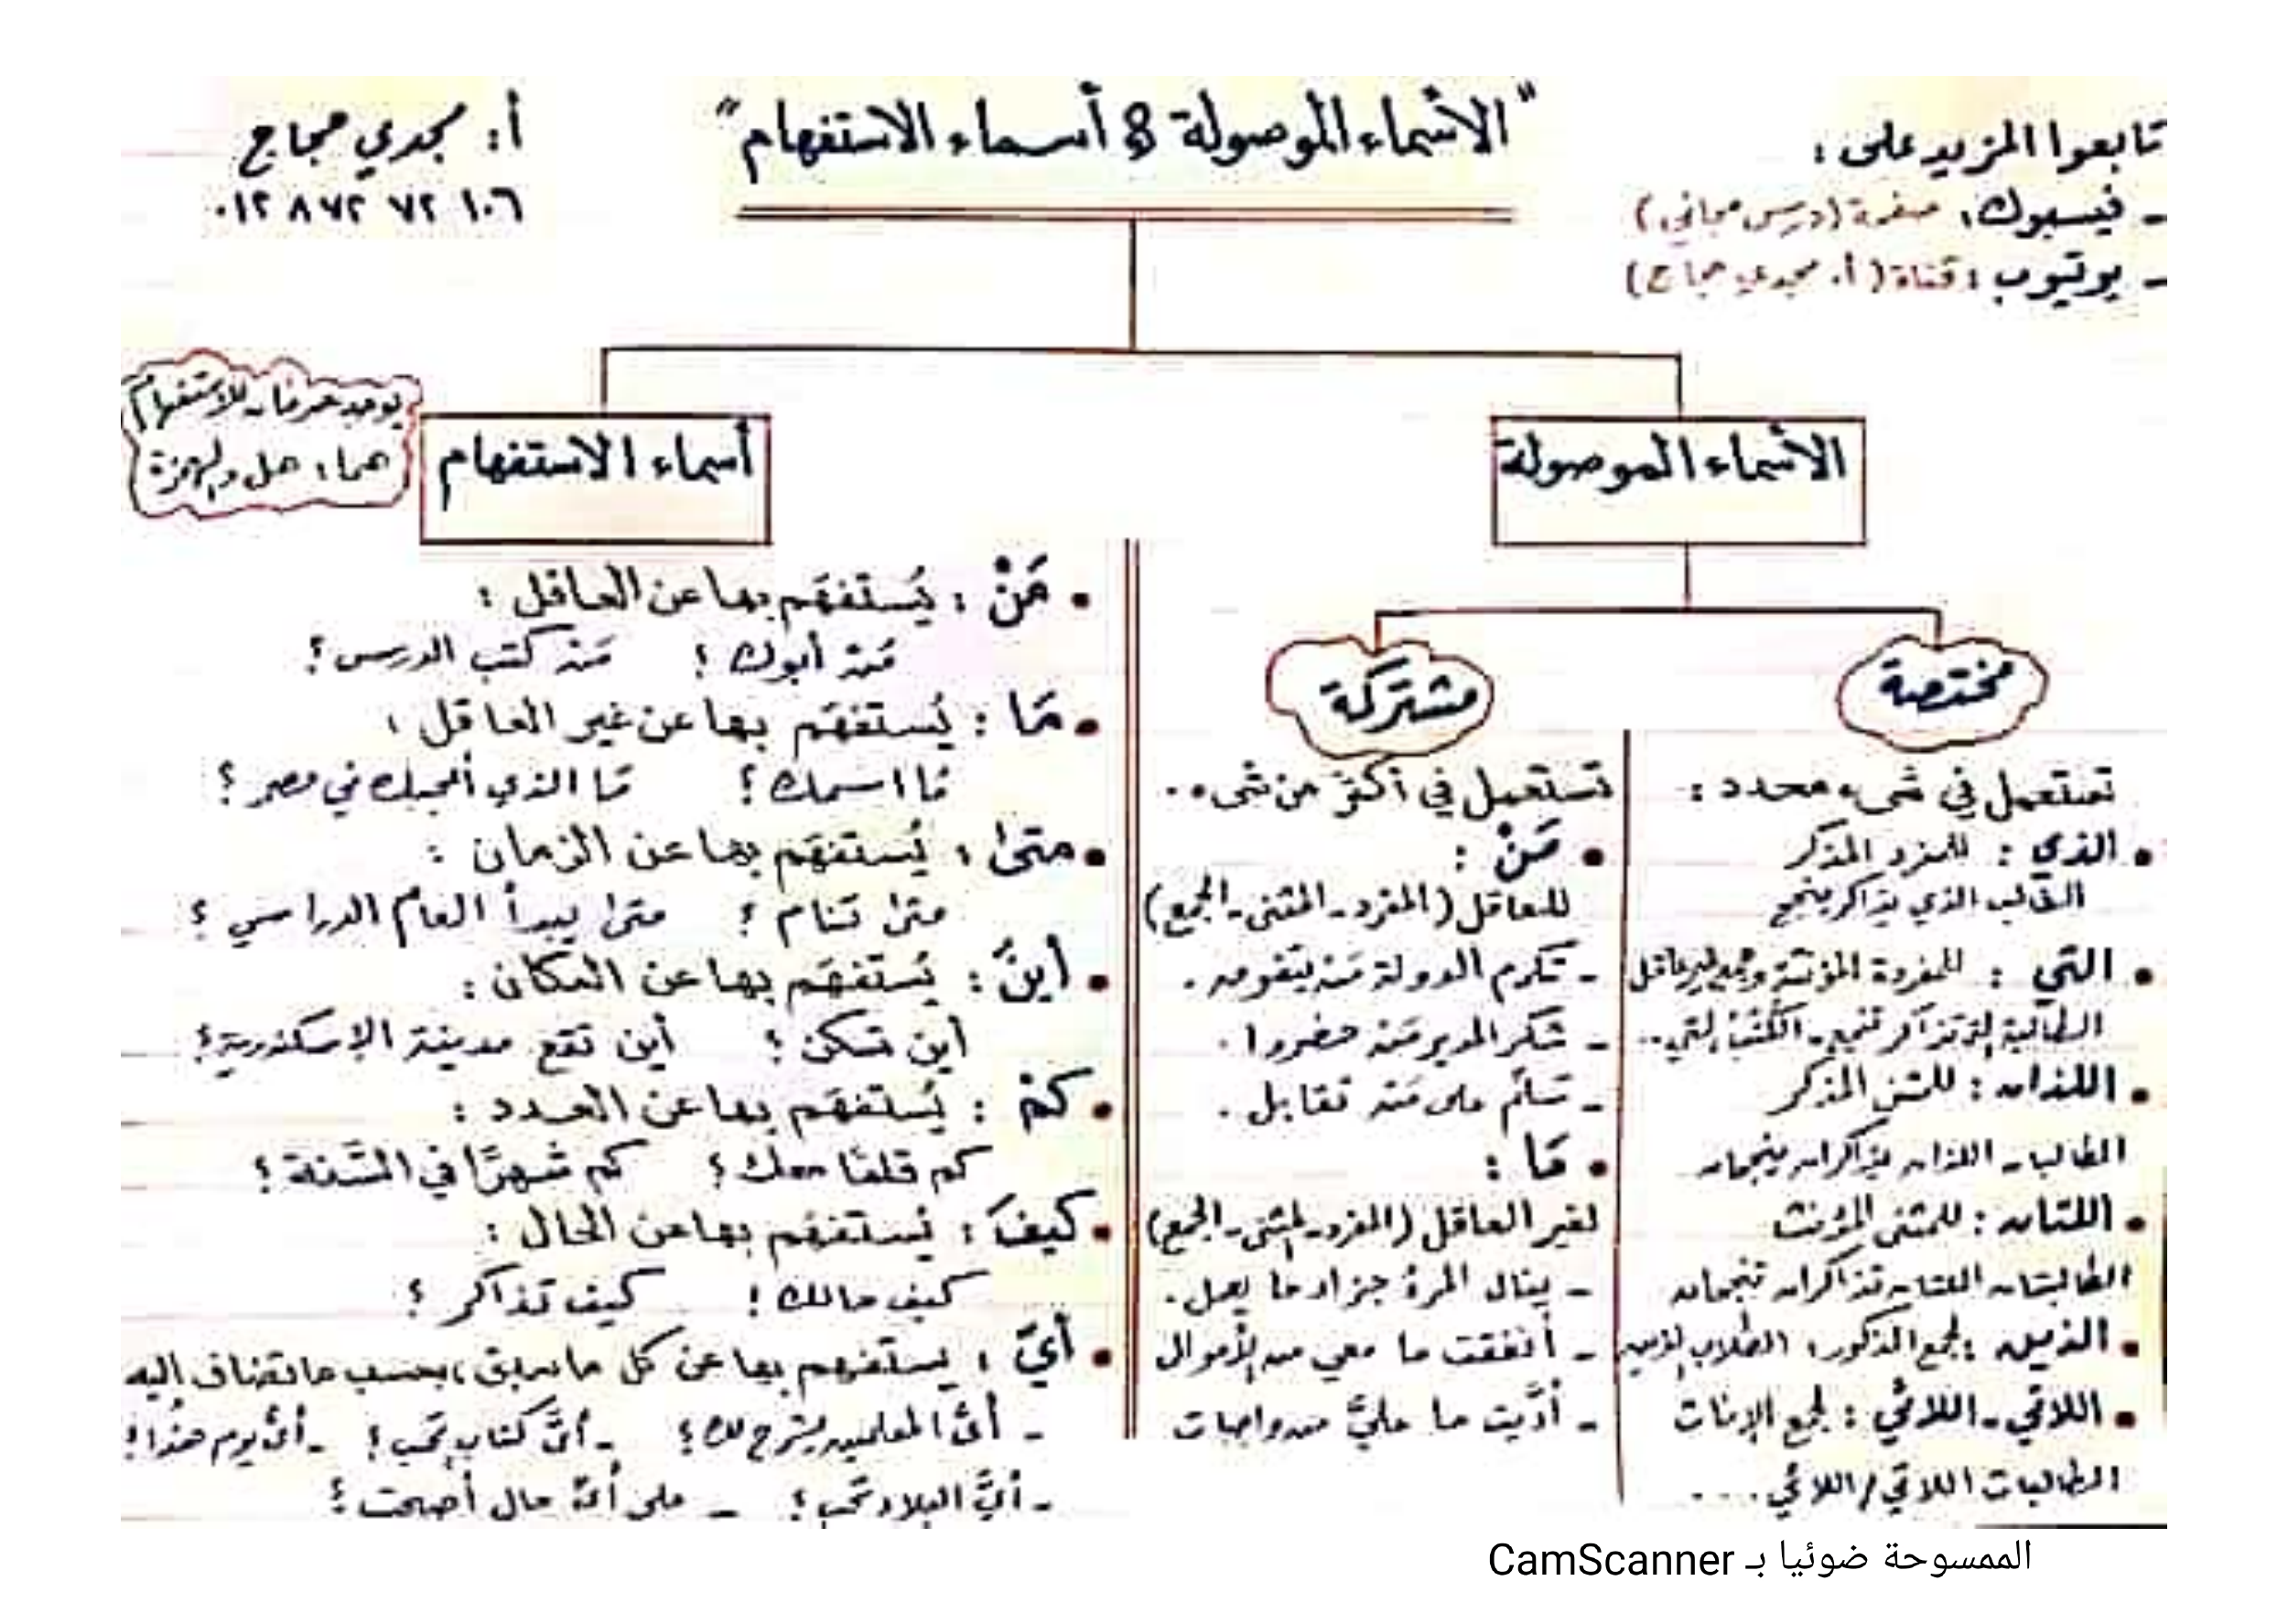 "الأسماء الموصولة & أسماء الاستفهام"
أ: مجدي حجاج
٠١٢ ٨٧٢ ٧٢ ١٠٦
تابعوا المزيد على:
- فيسبوك: صفحة (درس مجاني)
- يوتيوب: قناة (أ. مجدي حجاج)
الأسماء الموصولة
مختصة
تستعمل في شيء محدد:
• الذي: للمفرد المذكر
الطالب الذي يذاكر ينجح
• التي: للمفردة المؤنثة وجمع غير عاقل
الطالبة التي تذاكر تنجح - الكتب التي..
• اللذان: للمثنى المذكر
الطالبان اللذان يذاكران ينجحان
• اللتان: للمثنى المؤنث
الطالبتان اللتان تذاكران تنجحان
• الذين: لجمع الذكور: الطلاب الذين
• اللاتي - اللائي: لجمع الإناث
الطالبات اللاتي / اللائي....
مشتركة
تستعمل في أكثر من شيء..
• مَنْ:
للعاقل (المفرد - المثنى - الجمع)
- تكرم الدولة مَن يتفوق.
- شكر المدير مَن حضروا.
- تسلّم على مَن تقابل.
• مَا:
لغير العاقل (المفرد - المثنى - الجمع)
- ينال المرءُ جزاء ما يعمل.
- أنفقت ما معي من الأموال
- أدَّيت ما عليَّ من واجبات
أسماء الاستفهام
يوجد حرفان للاستفهام
هما: هل والهمزة
• مَنْ: يُستفهَم بها عن العاقل:
مَن أبوك؟ مَن كتب الدرس؟
• مَا: يُستفهَم بها عن غير العاقل:
مَا اسمك؟ مَا الذي أعجبك في مصر؟
• متى: يُستفهَم بها عن الزمان:
متى تنام؟ متى يبدأ العام الدراسي؟
• أينَ: يُستفهَم بها عن المكان:
أين تسكن؟ أين تقع مدينة الإسكندرية؟
• كمْ: يُستفهَم بها عن العدد:
كم قلمًا معك؟ كم شهرًا في السَّنة؟
• كيفَ: يُستفهَم بها عن الحال:
كيف حالك؟ كيف تذاكر؟
• أيّ: يستفهم بها عن كل ما سبق، بحسب ما تضاف إليه
- أيُّ المعلمين يشرح لك؟ - أيَّ كتاب تحب؟ - أيُّ يوم هذا؟
- أيَّ البلاد تحب؟ - على أيِّ حال أصبحت؟
الممسوحة ضوئيا بـ CamScanner